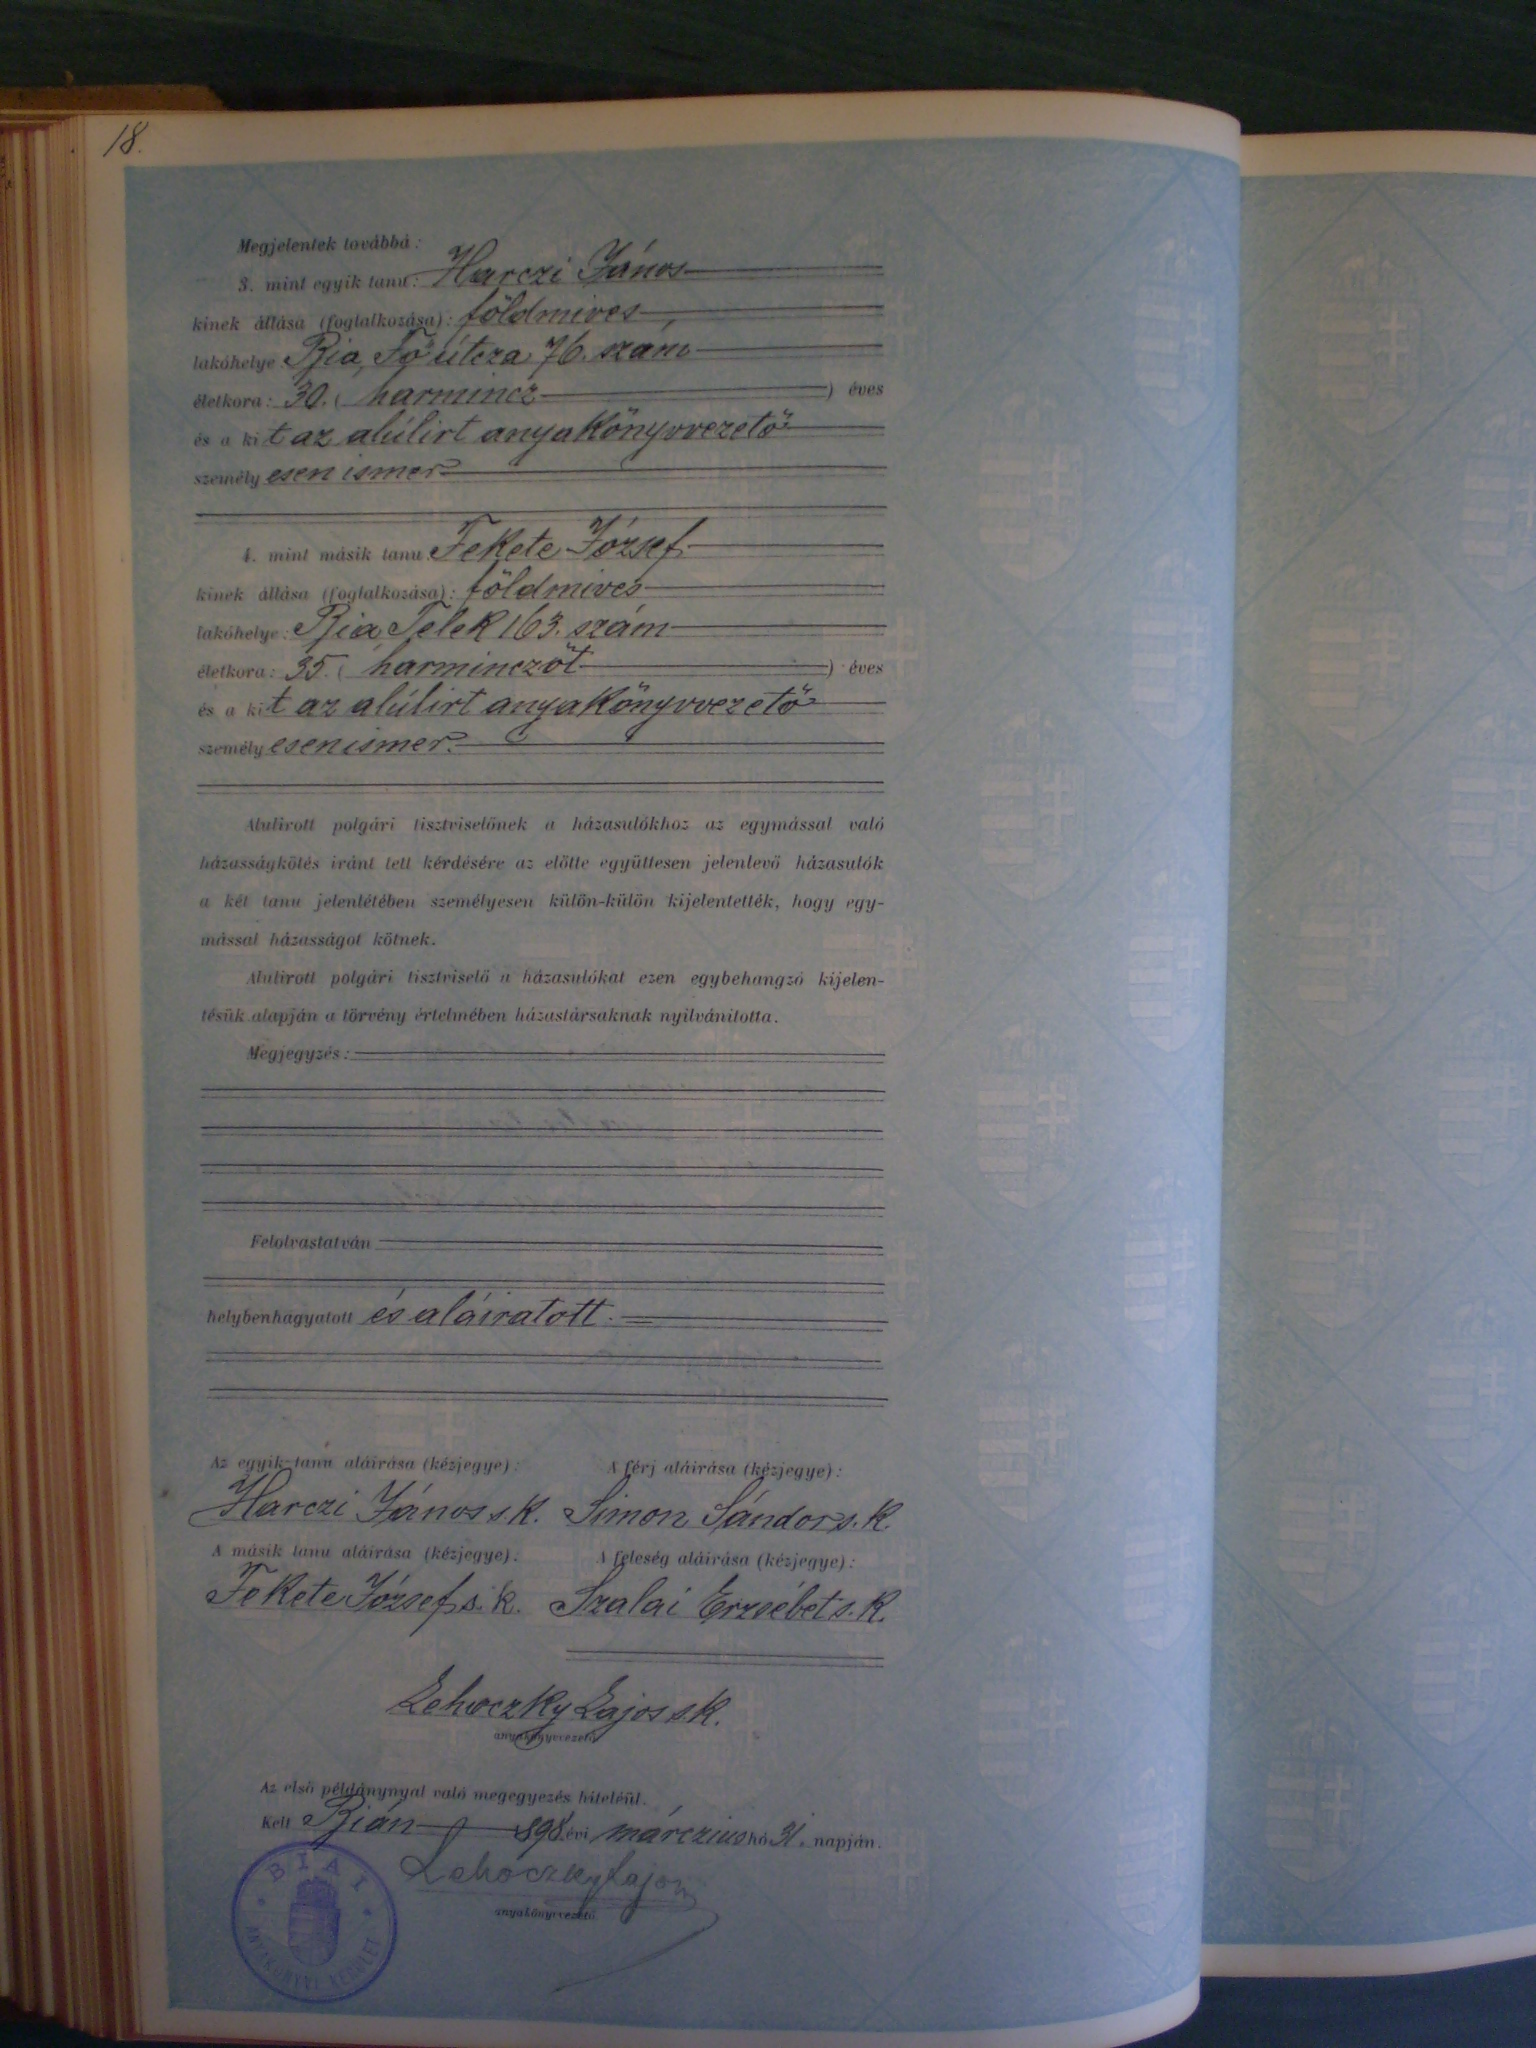 18.
Megjelentek továbbá:
3. mint egyik tanu: Harczi János
kinek állása (foglalkozása): földmives
lakóhelye Bia, Fő útcza 76. szám
életkora: 30. ( harmincz ) éves
és a kit az alúlirt anyakönyvvezető
személyesen ismer
4. mint másik tanu Fekete József
kinek állása (foglalkozása): földmives
lakóhelye: Bia Telek 163. szám
életkora: 35. ( harminczöt ) éves
és a kit az alúlirt anyakönyvvezető
személyesen ismer.
Alulirott polgári tisztviselőnek a házasulókhoz az egymással való
házasságkötés iránt tett kérdésére az előtte együttesen jelenlevő házasulók
a két tanu jelenlétében személyesen külön-külön kijelentették, hogy egy-
mással házasságot kötnek.
Alulirott polgári tisztviselő a házasulókat ezen egybehangzó kijelen-
tésük alapján a törvény értelmében házastársaknak nyilvánitotta.
Megjegyzés:
Felolvastatván
helybenhagyatott és aláiratott.
Az egyik tanu aláirása (kézjegye): A férj aláirása (kézjegye):
Harczi János s. k. Simon Sándor s. k.
A másik tanu aláirása (kézjegye): A feleség aláirása (kézjegye):
Fekete József s. k. Szalai Erzsébet s. k.
Lehoczky Lajos s k.
anyakönyvvezető
Az első példánynyal való megegyezés hiteléül.
Kelt Bián 898 évi márczius hó 31. napján.
Lehoczky Lajos
anyakönyvvezető.
BIAI
ANYAKÖNYVI KERÜLET